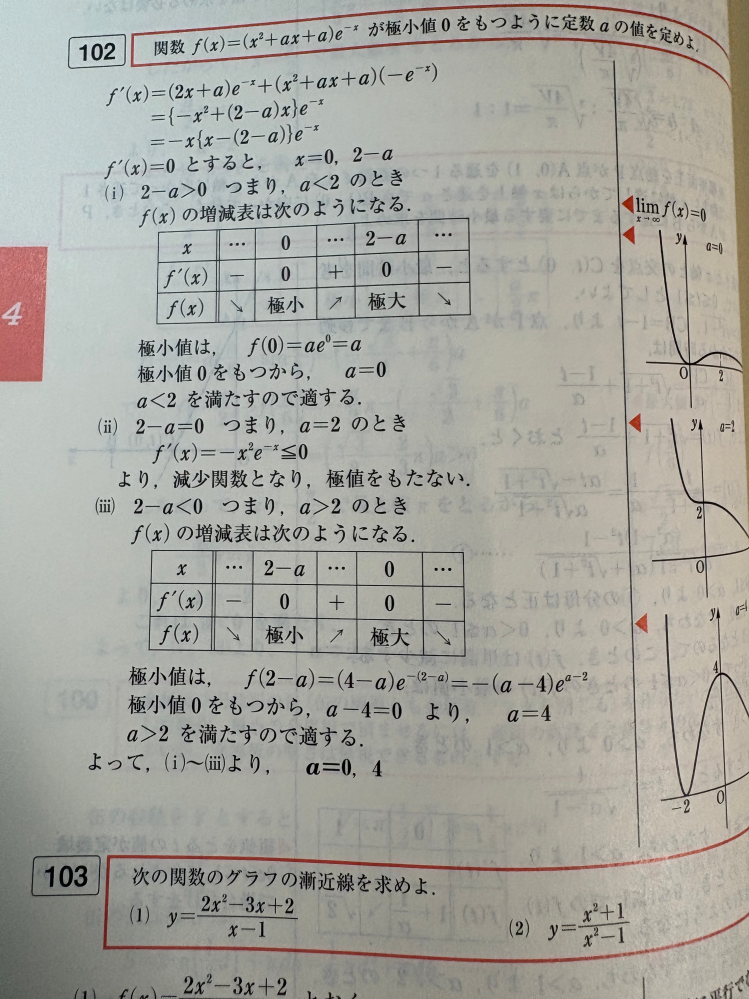 102 関数 f(x)=(x²+ax+a)e⁻ˣ が極小値 0 をもつように定数 a の値を定めよ.
f′(x)=(2x+a)e⁻ˣ+(x²+ax+a)(−e⁻ˣ)
={−x²+(2−a)x}e⁻ˣ
=−x{x−(2−a)}e⁻ˣ
f′(x)=0 とすると, x=0, 2−a
(ⅰ) 2−a>0 つまり, a<2 のとき
f(x) の増減表は次のようになる.
x … 0 … 2−a …
f′(x) − 0 + 0 −
f(x) ↘ 極小 ↗ 極大 ↘
極小値は, f(0)=ae⁰=a
極小値 0 をもつから, a=0
a<2 を満たすので適する.
(ⅱ) 2−a=0 つまり, a=2 のとき
f′(x)=−x²e⁻ˣ≦0
より, 減少関数となり, 極値をもたない.
(ⅲ) 2−a<0 つまり, a>2 のとき
f(x) の増減表は次のようになる.
x … 2−a … 0 …
f′(x) − 0 + 0 −
f(x) ↘ 極小 ↗ 極大 ↘
極小値は, f(2−a)=(4−a)e^{−(2−a)}=−(a−4)e^{a−2}
極小値 0 をもつから, a−4=0 より, a=4
a>2 を満たすので適する.
よって, (ⅰ)〜(ⅲ)より, a=0, 4
lim f(x)=0
x→∞
y a=0
O 2
y a=2
2
O
y
4
−2 O
4
103 次の関数のグラフの漸近線を求めよ.
(1) y=(2x²−3x+2)/(x−1) (2) y=(x²+1)/(x²−1)
2x²−3x+2